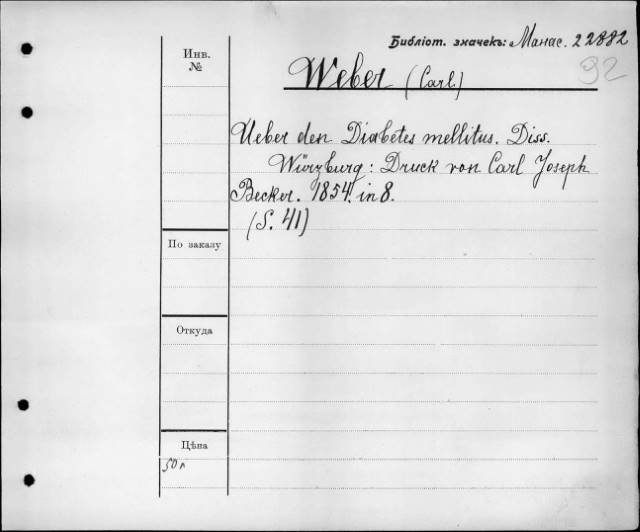 Библіот. значекъ: Манас. 22882
92
Инв.
№
Weber (Carl)
Ueber den Diabetes mellitus. Diss.
Würzburg: Druck von Carl Joseph
Becker. 1854. in 8.
(S. 41)
По заказу
Откуда
Цѣна
50